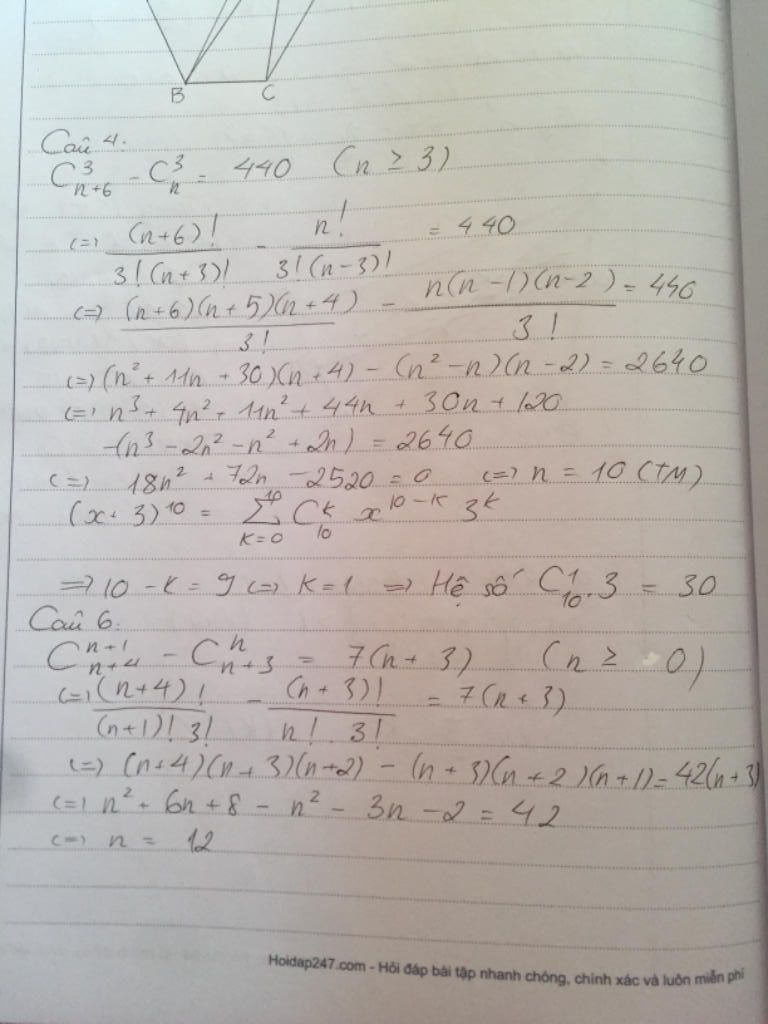 B C
Câu 4:
C³ₙ₊₆ - C³ₙ = 440 (n ≥ 3)
(=) (n+6)!/3!(n+3)! - n!/3!(n-3)! = 440
(=) (n+6)(n+5)(n+4)/3! - n(n-1)(n-2)/3! = 440
(=) (n² + 11n + 30)(n+4) - (n² - n)(n-2) = 2640
(=) n³ + 4n² + 11n² + 44n + 30n + 120
-(n³ - 2n² - n² + 2n) = 2640
(=) 18n² + 72n - 2520 = 0 (=) n = 10 (TM)
(x + 3)¹⁰ = ∑¹⁰ₖ₌₀ Cᵏ₁₀ x¹⁰⁻ᵏ 3ᵏ
=> 10 - K = 9 (=) K = 1 => Hệ số C¹₁₀.3 = 30
Câu 6:
Cⁿ⁺¹ₙ₊₄ - Cⁿₙ₊₃ = 7(n + 3) (n ≥ 0)
(=) (n+4)!/(n+1)! 3! - (n+3)!/n! 3! = 7(n+3)
(=) (n+4)(n+3)(n+2) - (n+3)(n+2)(n+1) = 42(n+3)
(=) n² + 6n + 8 - n² - 3n - 2 = 42
(=) n = 12
Hoidap247.com - Hỏi đáp bài tập nhanh chóng, chính xác và luôn miễn phí